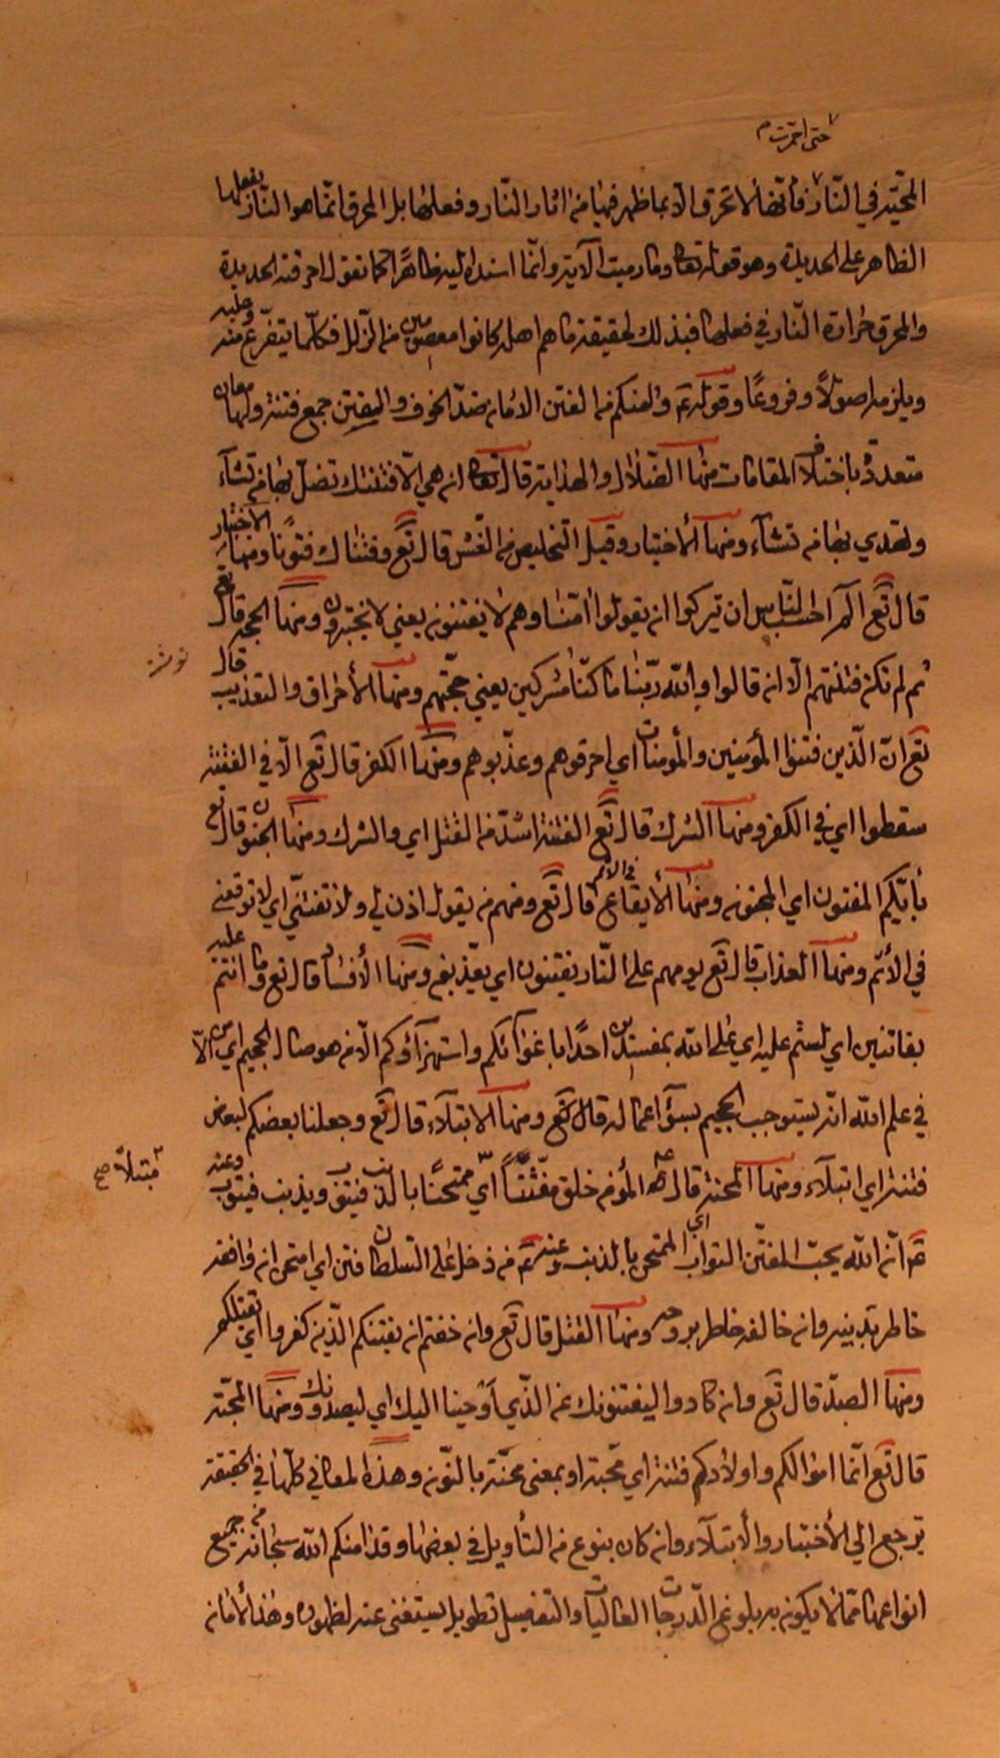 حتى احمرت
المحمّية في النّار فأنّها لا تحرق الّا بما ظهر فيها من اثار النّار وفعلها بل المحرق انّما هو النّار بفعلها
الظاهر على الحديدة وهو قوله تعالى وما رميت الآية وانّما اسند اليه ظاهرًا كما تقول احرقته الحديدة
والمحرق حرارة النّار في فعلها فبذلك لحقيقة ما هم اهله كانوا معصومين من الزّلل فكلّما يتفرّع منه وعليه
ويلزمه اصولًا وفروعًا وقوله ع وامنكم من الفتن الامان ضدّ الخوف والفتن جمع فتنة ولها معان
متعددة باختلاف المقامات منها الضّلال والهداية قال تعالى ان هي الّا فتنتك تضلّ بها من تشآء
وتهدي بها من تشآء ومنها الأختيار وقيل التخليص من الغش قال تع وفتنّاك فتونًا ومنها الأختبار
قال تع الم احسب النّاس ان يتركوا ان يقولوا امنّا وهم لا يفتنون يعني لا يختبرون ومنها الحجه قال تع
ثم لم تكن فتنتهم الّا ان قالوا والله ربّنا ما كنّا مشركين يعني حجّتهم ومنها الأحراق والتعذيب قال
تع انّ الّذين فتنوا المؤمنين والمؤمنات اي احرقوهم وعذّبوهم ومنها الكفر قال تع الّا في الفتنة
سقطوا اي في الكفر ومنها الشرك قال تع الفتنة اشدّ من القتل اي والشرك ومنها الجنون قال تع
بأيّكم المفتون اي المجنون ومنها الأيقاع في الاثم قال تع ومنهم من يقول اذن لي ولا تفتنّي اي لا توقعني
في الأثم ومنها العذاب قال تع يوم هم على النّار يفتنون اي يعذّبون ومنها الأفساد قال تع وما انتم عليه
بفاتنين اي لستم عليه اي على الله بمفسدين احدًا باغوائكم واستهزآؤكم الّا من هو صال الجحيم اي من الّا
في علم الله انّه يستوجب الجحيم بسوء اعماله قال تع ومنها الابتلآء قال تع وجعلنا بعضكم لبعض
فتنة اي ابتلآء ومنها المحنة قال ع المؤمن خلق مفتّنًا اي ممتحنًا بالذنب فيتوب ويذنب فيتوب وعنه
مبتلاً صح
ع انّ الله يحبّ المفتّن التواب اي الممتحن بالذنب وعنه ع من دخل على السلطان فتن اي امتحن ان وافقه
خاطر بدينه وان خالفه خاطر بروحه ومنها القتل قال تع وان خفتم ان يفتنكم الّذين كفروا اي يقتلكم
ومنها الصدّ قال تع وان كادوا ليفتنونك عن الّذي اوحينا اليك اي ليصدونك ومنها المحبّة
قال تع انّما اموالكم واولادكم فتنة اي محبّة او بمعنى محنة بالنّون وهذه المعاني كلّها في الحقيقة
ترجع الى الأختبار والأبتلآء وان كان بنوع من التأويل في بعضها وقد امنكم الله سبحانه من جميع
انواعها ممّا لا يكون به بلوغ الدّرجات العاليات والتفصيل تطويل يستغنى عنه لظهوره وهذا الأمان